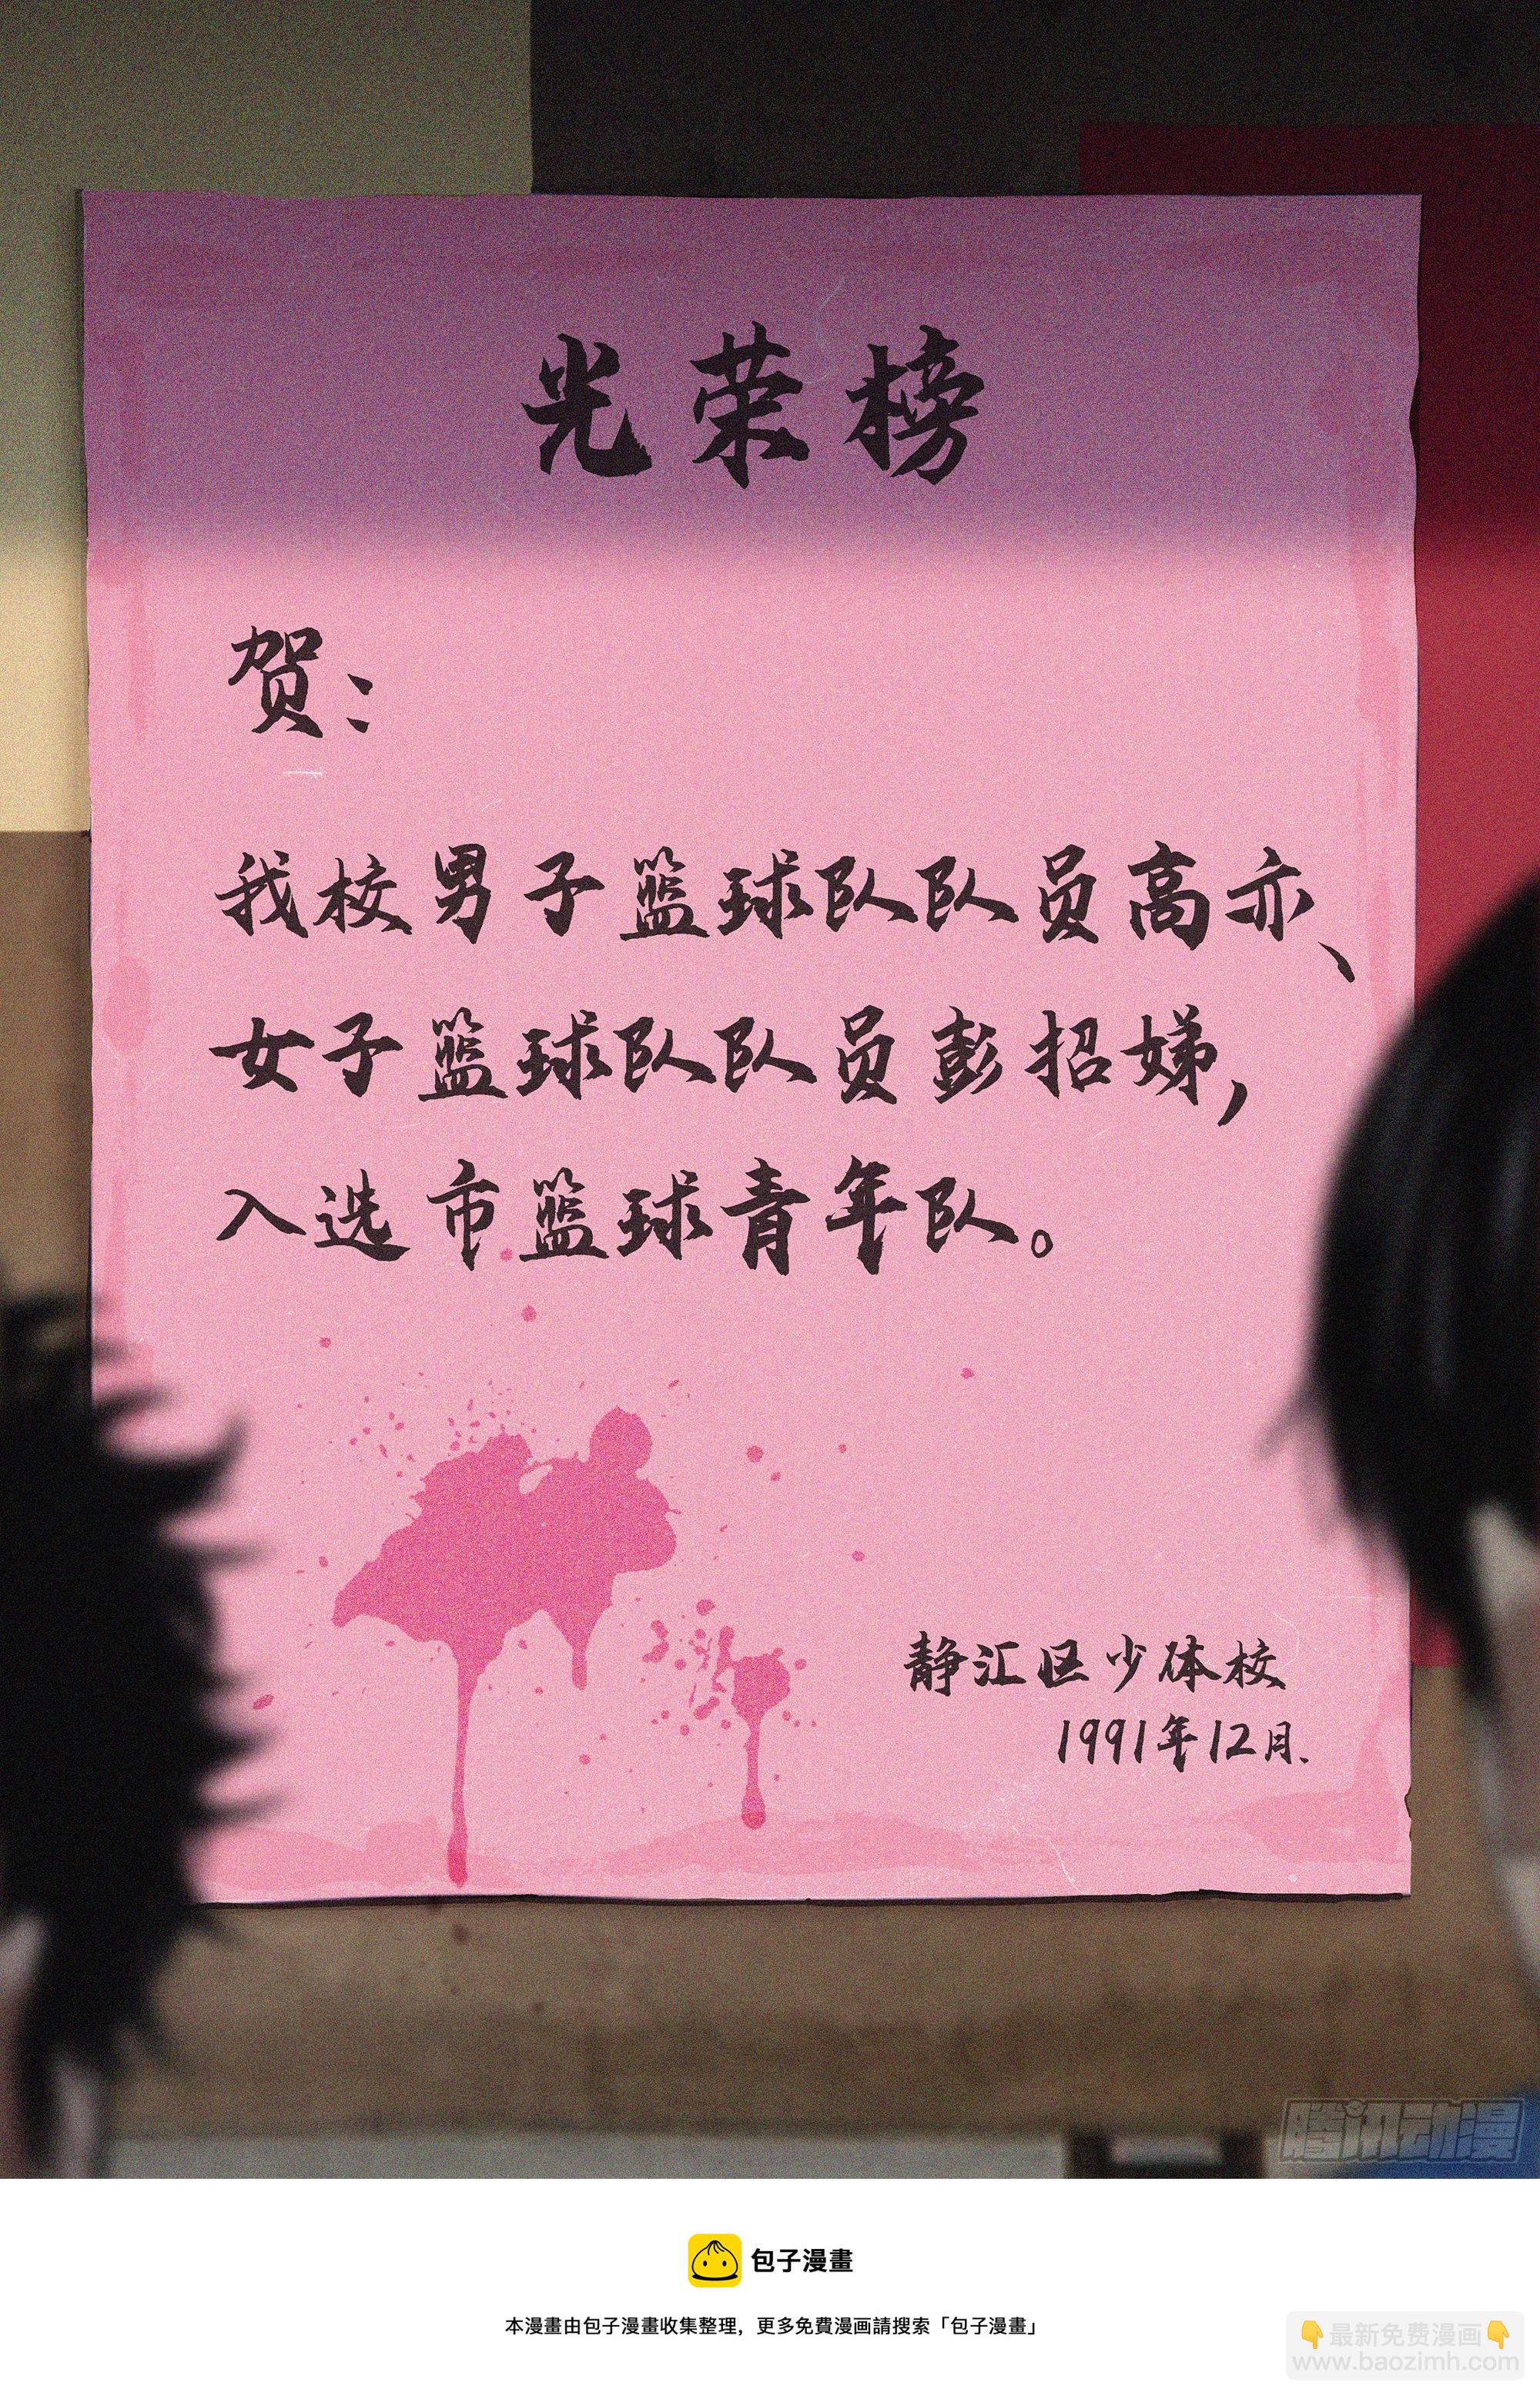 光荣榜
贺：
我校男子篮球队队员高亦、
女子篮球队队员彭招娣，
入选市篮球青年队。
静汇区少体校
1991年12月.
腾讯动漫
包子漫畫
本漫畫由包子漫畫收集整理，更多免費漫画請搜索「包子漫畫」
👇最新免费漫画👇
www.baozimh.com